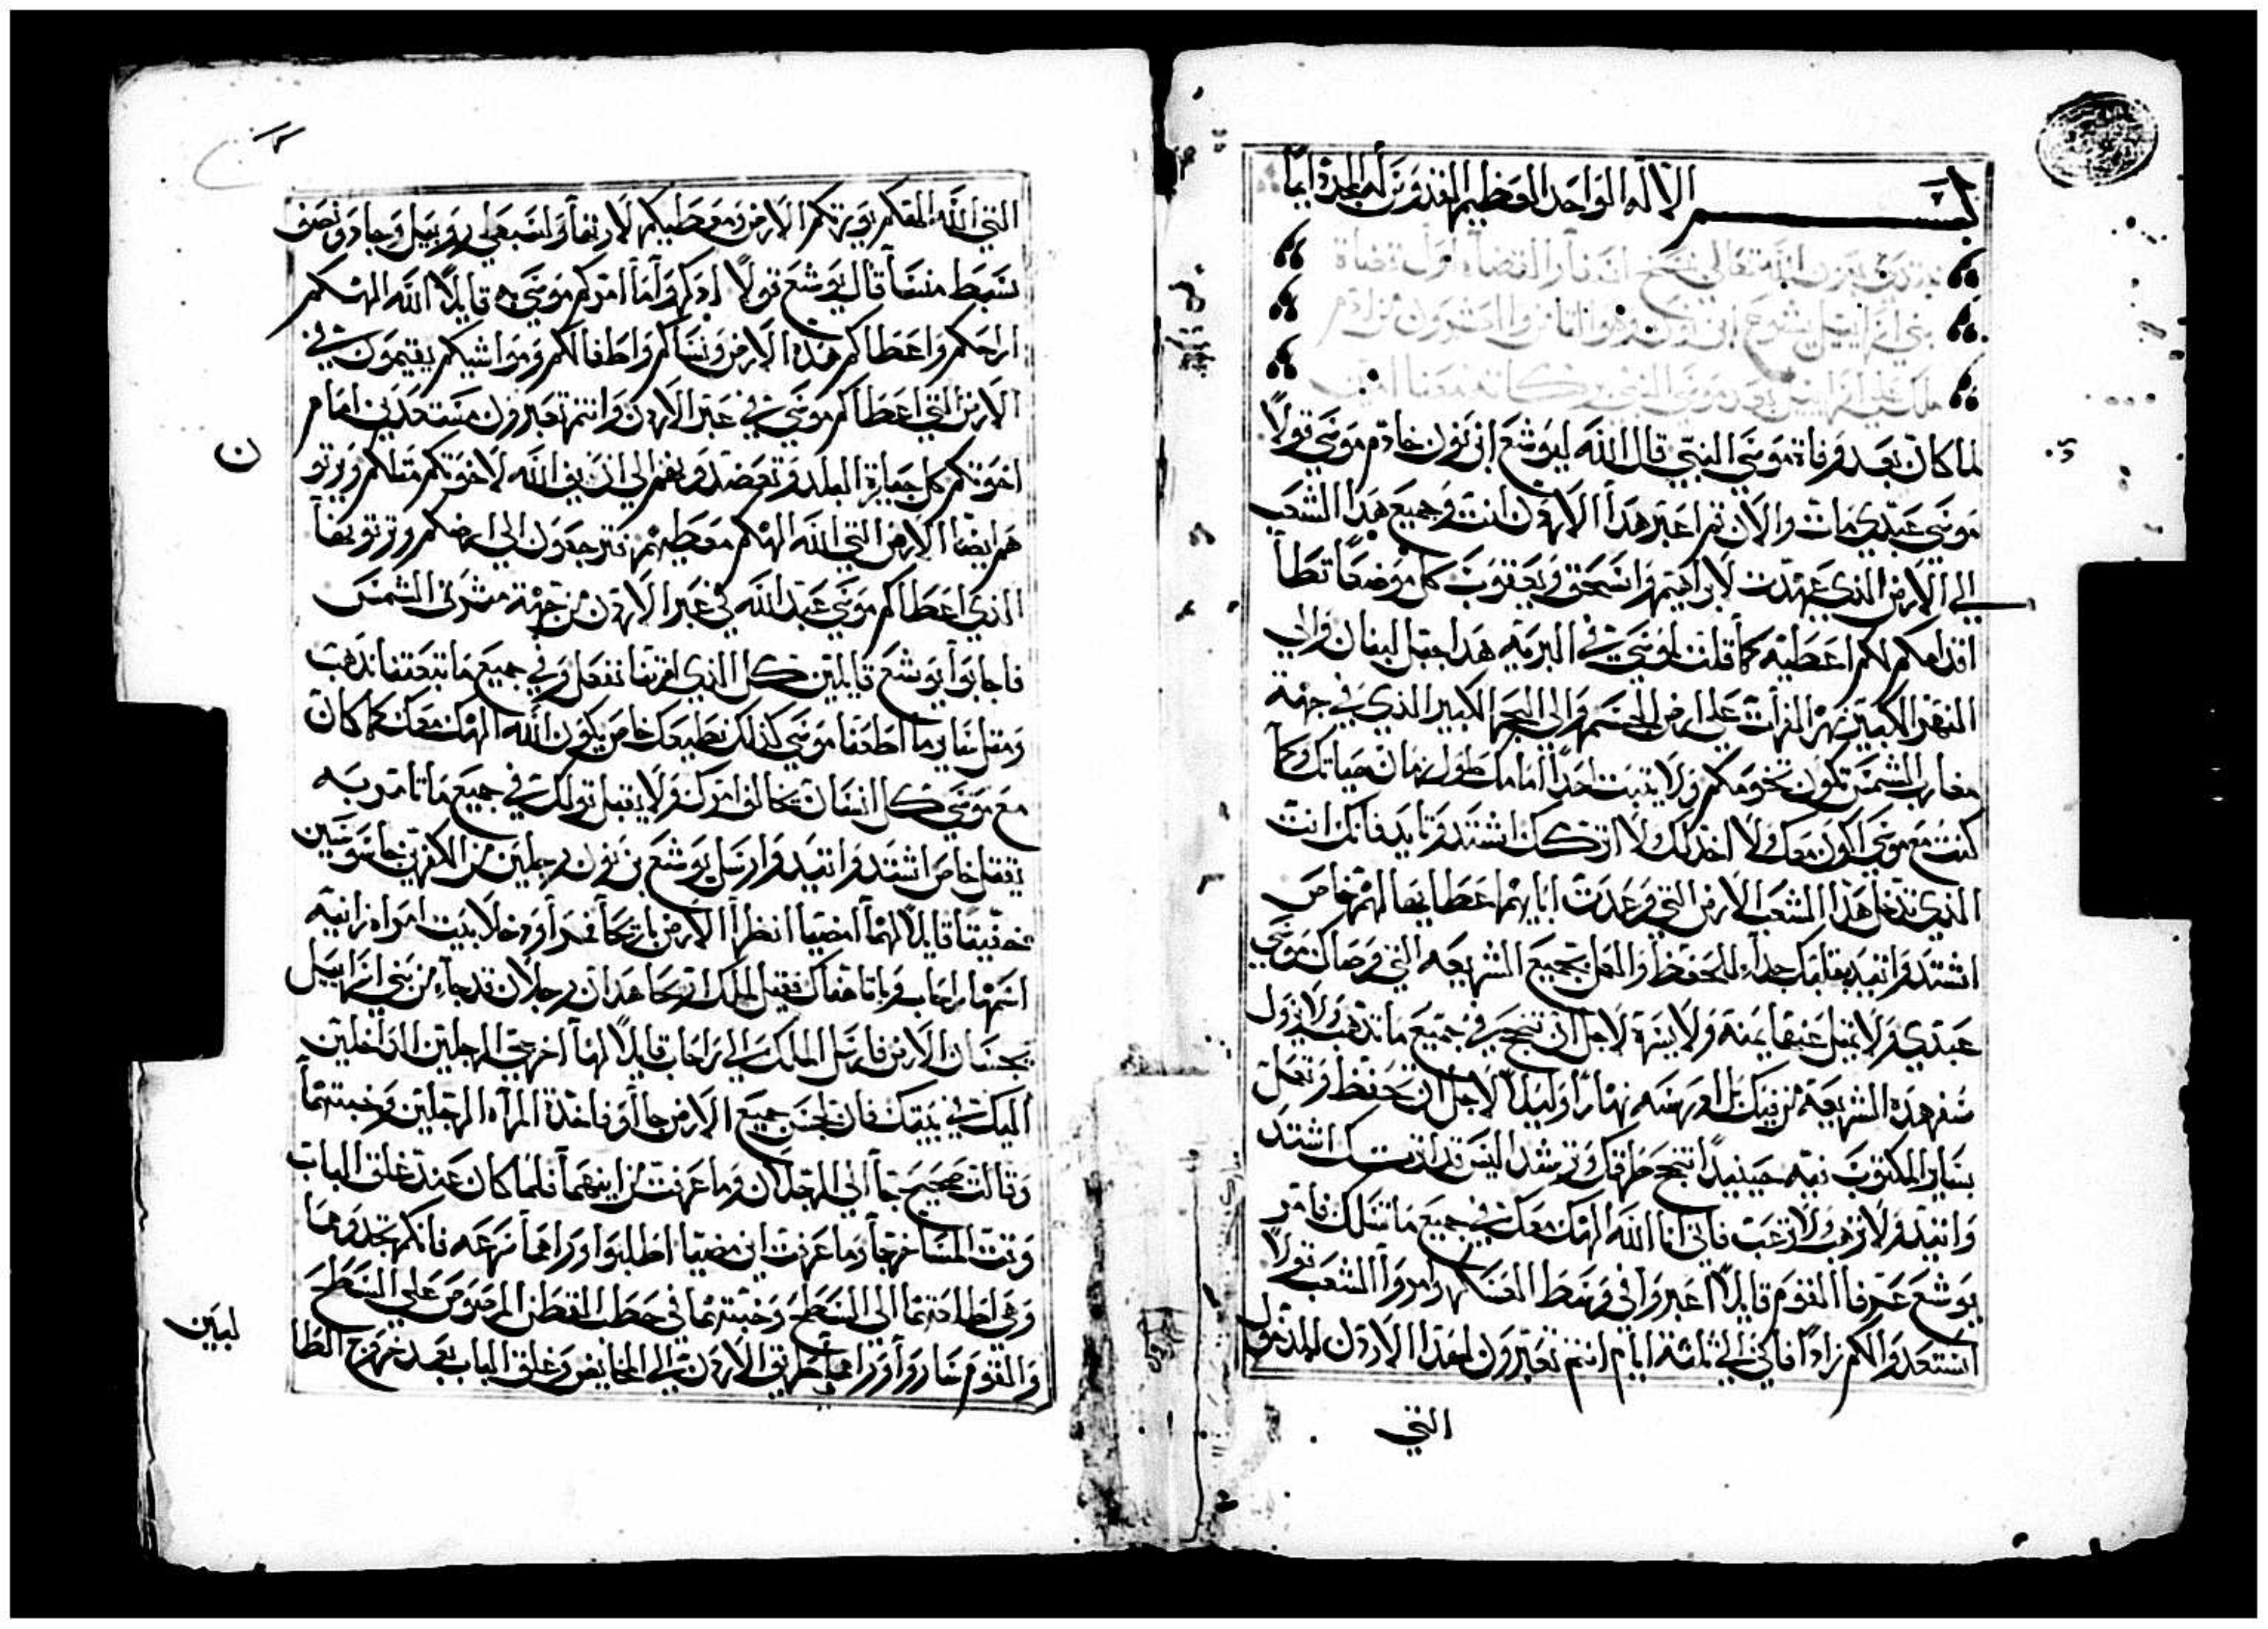 بسم الاله الواحد العظيم القدوس له المجد دايما
نبتدي بعون الله تعالى بنسخ اسفار القضاه اول قضاة
بني اسراييل يشوع ابن نون وهو
ملك على اسراييل بعد موسى النبي بركاته معنا امين
لما كان بعد وفاة موسى النبي قال الله ليوشع ابن نون خادم موسى قولاً
موسى عبدي مات والان قم اعبر هذا الاردن انت وجميع هذا الشعب
الي الارض الذي عهدت لابراهيم واسحق ويعقوب كل موضعاً تطأ
اقدامكم لكم اعطيه كما قلت لموسى في البريه هذا جبل لبنان والي
النهر الكبير نهر الفرات على ارض والى البحر الكبير الذي في جهة
مغارب الشمس تكون تخومكم ولا يثبت احداً امامك طول زمان حياتك وكما
كنت مع موسى اكون معك ولا اخذلك ولا اتركك اشتد وتايد فانك انت
الذي تدخل هذا الشعب الارض التي وعدت ابايهم اعطايها لهم خاص
اشتد واتيد بقلبك جداً للحفظ والعمل بجميع الشريعه التي وصاك موسى
عبدي ولا تميل عنها يمنة ولا يسرة لاجل ان تنجح في جميع ما تذهب ولا يزول
سفر هذه الشريعة من فيك بل ادرسه نهاراً وليلاً لاجل ان تحفظ وتعمل
بساير المكتوب فيه حينيذاً تنجح طرقك وترشد اليس قد امرتك اشتد
واتيد ولا ترهب ولا ترعب فاني انا الله الهك معك في جميع ما تسلك فامر
يوشع عرفا القوم قايلاً اعبروا في وسط العسكر وامروا الشعب قولاً
استعدوا لكم زاداً فاكن الي ثلثة ايام انتم تعبرون هذا الاردن للدخول
التي
التي الله الهكم يورثكم الارض ومعطيكم لارثها ولسبطي روبيل وجاد ونصف
سبط منسا قال يوشع قولاً اذكروا ما امركم موسى قايلاً الله الهكم
اراحكم واعطاكم هذه الارض ونساكم واطفالكم ومواشيكم يقيمون في
الارض التي اعطاكم موسى في عبر الاردن وانتم تعبرون مستعدين امام
اخوتكم كل جبابرة البلد وتعضدونهم الي ان يريح الله لاخوتكم مثلكم ويرثو
هم ايضا الارض التي الله الهكم معطيهم فترجعون الي ارضكم وترثوها
الذي اعطاكم موسى عبد الله في عبر الاردن من جهة مشرق الشمس
فاجابوا يوشع قايلين كل الذي امرتنا نفعل وفي جميع ما تبعثنا نذهب
ومثل ساير ما اطعنا موسى كذلك نطيعك خاص يكون الله الهك معك كما كان
مع موسى كل انسان يخالف امرك ولا يقبل قولك في جميع ما تامر به
يقتل خاص اشتد واتيد وارسل يوشع بن نون رجلين من الاكمين جاسوسين
خفيتا قايلاً لهما امضيا انظرا الارض واريحا فمرا ودخلا بيت امراه زانيه
اسمها راحاب وباتا هناك فقيل لملك اريحا هذان رجلان قد جاء من بني اسراييل
يجسان الارض فارسل الملك الي راحاب قايلاً لها اخرجي الرجلين الداخلين
اليك في بيتك فان لجس جميع الارض جاأو فاخذة المرأه الرجلين وخبتهما
وقالت صحيح جا الي الرجلان وما عرفت من اينهما فلما كان عند غلق الباب
وقت المسا خرجا وما عرفت اين مضيا اطلبوا وراهما سرعه فانكم تجدوهما
وهي اطلعتهما الي السطح وخبتهما في حطب القطن المرصوص علي السطح
والقوم ساروا وراهما طريق الاردن الي المخايض وغلق الباب بعد خروج الطا
لبين